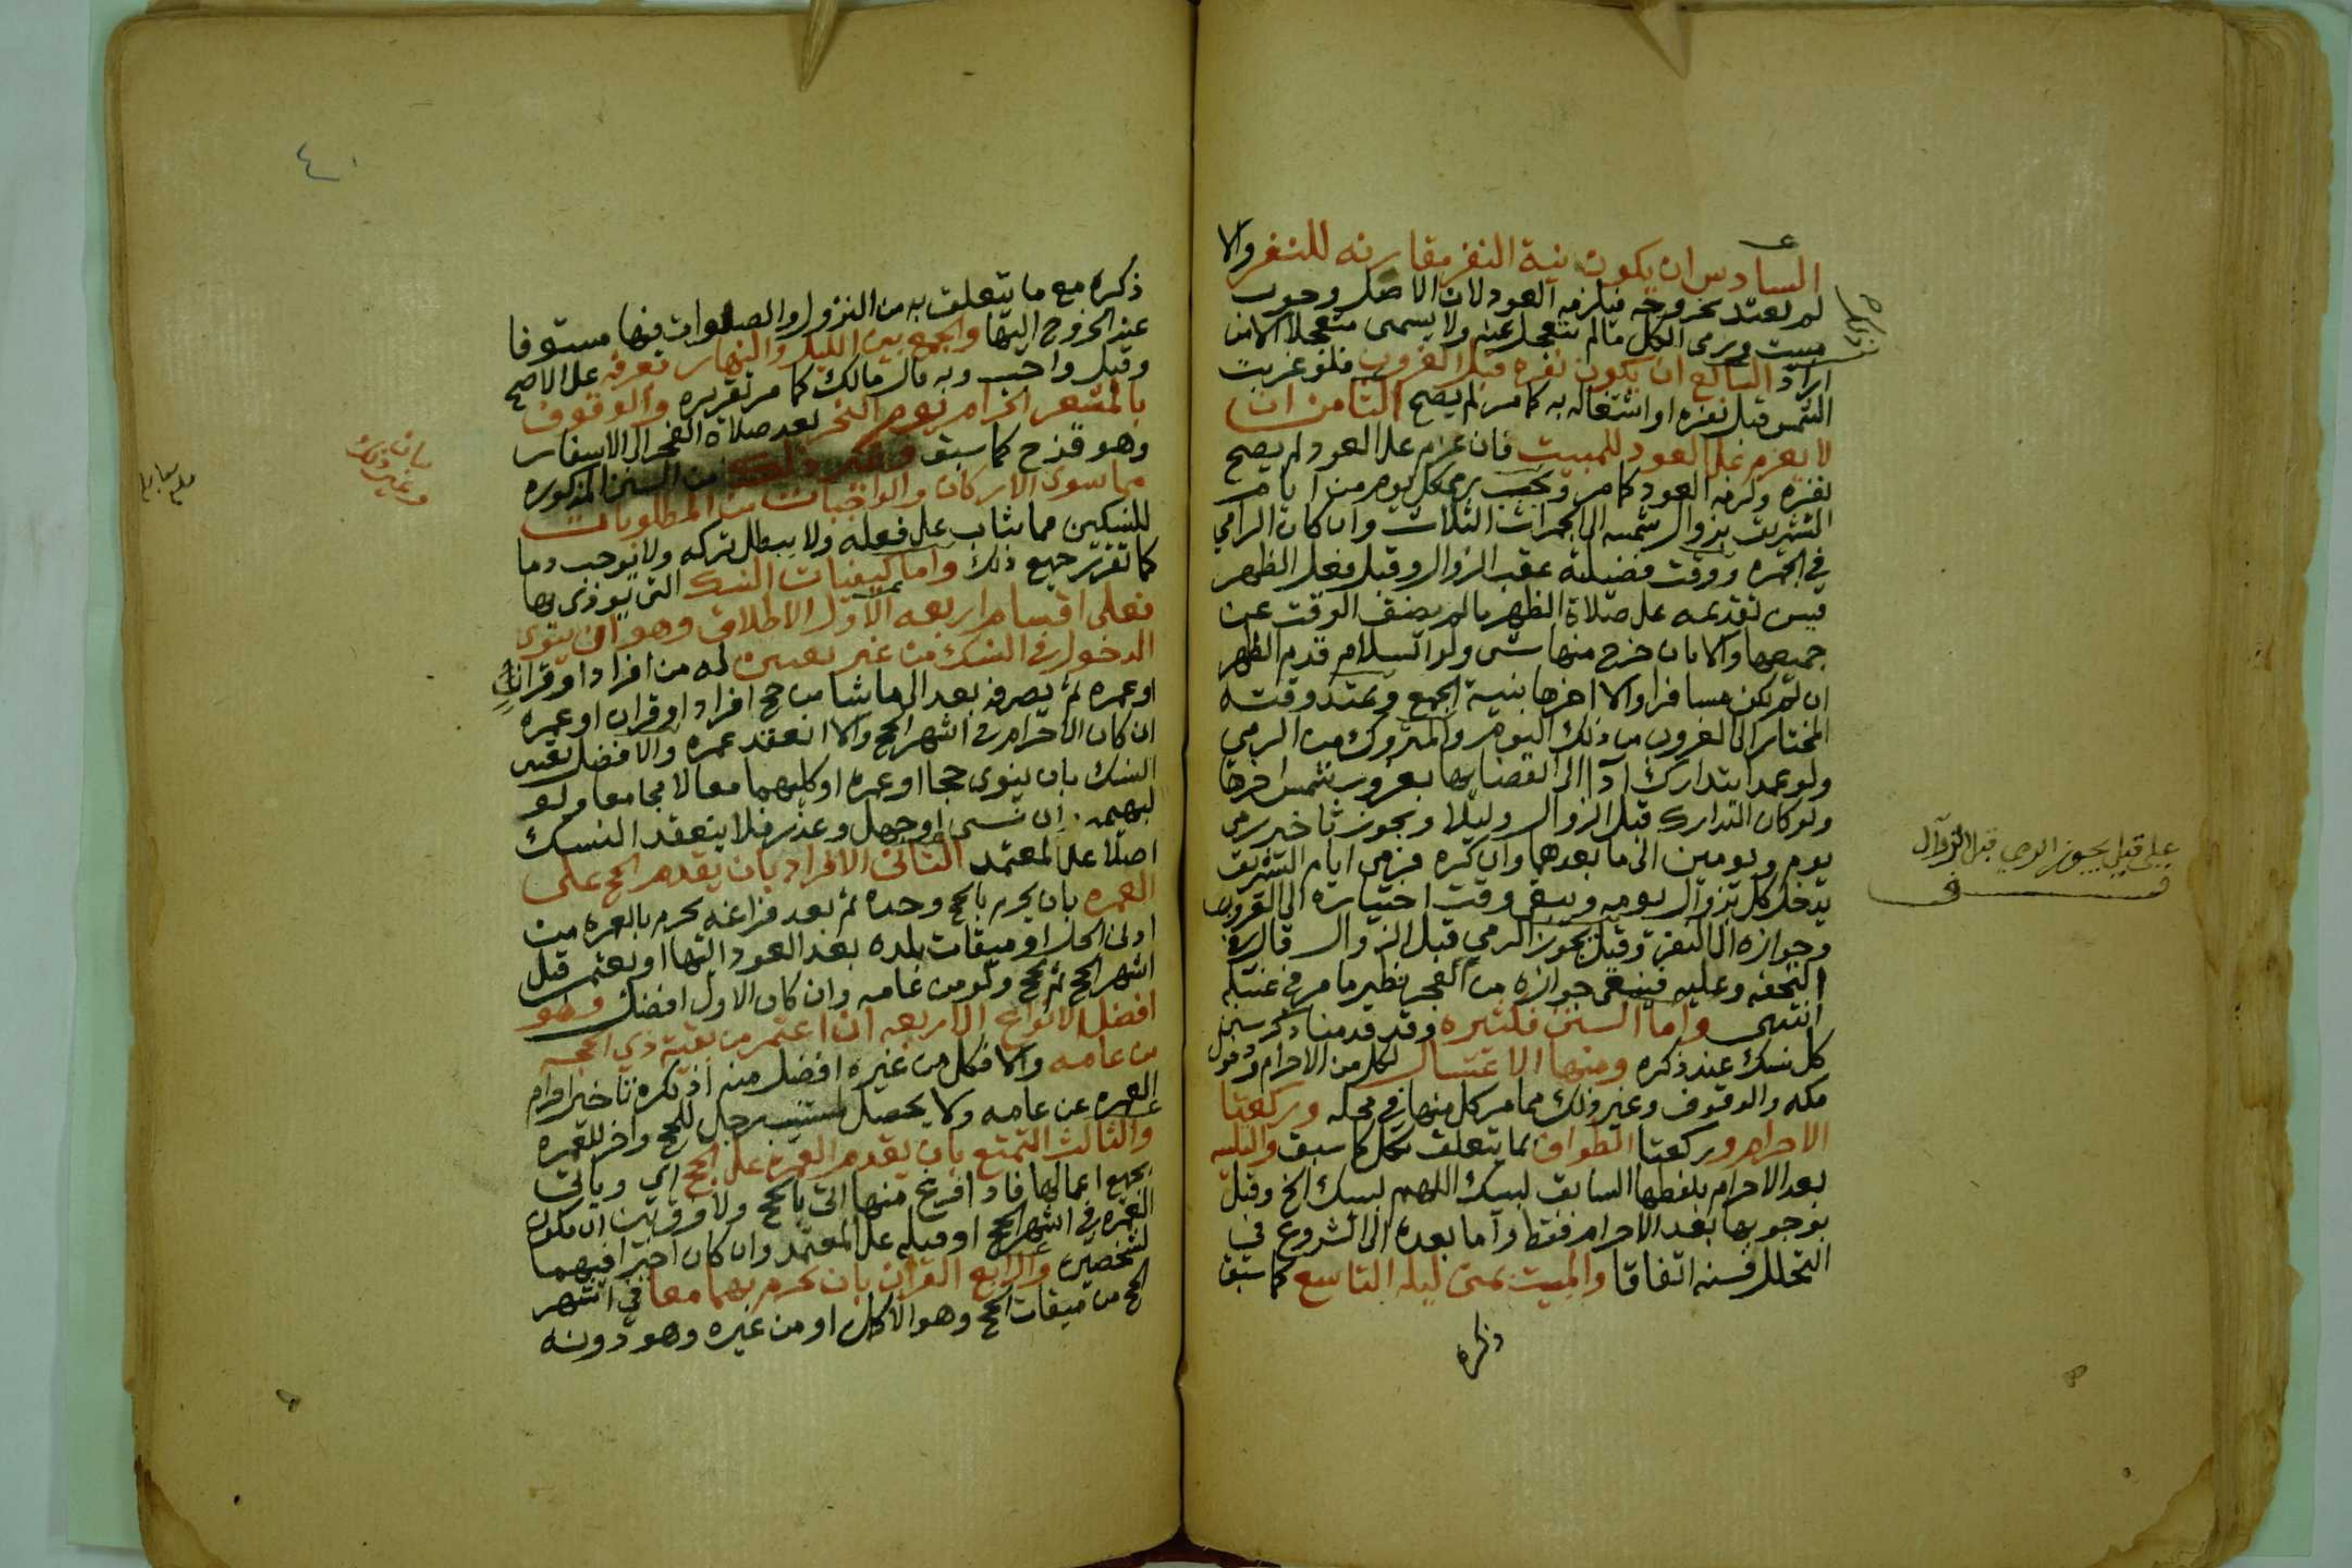 السادس ان يكون نية النفر مقارنه للنفر والا
لم يعتد بخروجه فيلزمه العود لان الاصل وجوب
مبيت ورمى الكل مالم يتعجل عنه ولا يسمى متعجلا الا من
اراد السابع ان يكون نفره قبل الغروب فلو غربت
الشمس قبل نفره او اشتغاله به كما مر لم يصح الثامن ان
لا يعزم على العود للمبيت فان عزم على العود لم يصح
نفره ولزمه العود كما مر ويجب برمى كل يوم من ايام
التشريق بزوال شمسه الى الجمرات الثلاث وان كان الرامي
في الجمره ووقت فضيلته عقب الزوال وقبل فعل الظهر
فيسن تقديمه على صلاة الظهر مالم يضق الوقت عن
جميعها والا بان خرج منها شى ولو السلام قدم الظهر
ان لم يكن مسافرا والا اخرها بنية الجمع ويمتد وقته
المختار الى الغروب من ذلك اليوم والمتروك من الرمي
ولو عمدا يتدارك ادا الى انقضايها بغروب شمس اخرها
ولو كان التدارك قبل الزوال وليلا ويجوز تاخير رمى
يوم ويومين الى ما بعدهما وان كره فرمى ايام التشريق
يدخل كل بزوال يومه ويبقى وقت اختياره الى الغروب
وجوازه الى النفر وقيل يجوز الرمي قبل الزوال قال في
التحفه وعليه فينبغى جوازه من الفجر نظير ما مر في غسله
انتهى واما السنن فكثيره وقد قدمنا ذكر سنن
كل نسك عند ذكره ومنها الاغتسال لكل من الاحرام ودخول
مكه والوقوف وغير ذلك مما مر كل منها في محله وركعتا
الاحرام وركعتا الطواف بما يتعلق بكل كما سبق والتلبيه
بعد الاحرام بلفظها السابق لبيك اللهم لبيك الخ وقيل
بوجوبها بعد الاحرام فقط واما بعده الى الشروع في
التحلل فسنه اتفاقا والمبيت بمنى ليله التاسع كما سبق
ذكره
على قيل يجوز الرمي قبل الزوال
ذكره مع ما يتعلق به من النزول والصلوات فيها مستوفا
عند الخروج اليها والجمع بين الليل والنهار بعرفه على الاصح
وقيل واجب وبه قال مالك كما مر تقريره والوقوف
بالمشعر الحرام يوم النحر بعد صلاة الفجر الى الاسفار
وهو قزح كما سبق وغير ذلك من السنن المذكوره
مما سوى الاركان والواجبات من المطلوبات
للنسكين مما يثاب على فعله ولا يبطل تركه ولا يوجب دما
كما تقرر جميع ذلك واما كيفيات النسك التي يودى بها
فعلى اقسام اربعه الاول الاطلاق وهو ان ينوى
الدخول في النسك من غير تعيين له من افراد او قران
او عمره ثم يصرفه بعد الى ما شا من حج افراد او قران او عمره
ان كان الاحرام في اشهر الحج والا انعقد عمره والافضل تعين
النسك بان ينوى حجا او عمرة او كليهما معا لا مجامعا ولو
لبهيمه ان نسى او جهل وعذر فلا ينعقد النسك
اصلا على المعتمد الثاني الافراد بان يقدم الحج على
العمره بان يحرم بالحج وحده ثم بعد فراغه يحرم بالعمره من
ادنى الحل او ميقات بلده بعد العود اليها او يعتمر قبل
اشهر الحج ثم يحج ولو من عامه وان كان الاول افضل وهو
افضل الانواع الاربعه ان اعتمر من بقية ذي الحجه
من عامه والا فكل من غيره افضل منه اذ يكره تاخير احرام
العمره عن عامه ولا يحصل لمستنيب رجل للحج واخر للعمره
والثالث التمتع بان يقدم العمره على الحج اى وياتى
بجميع اعمالها فاذا فرغ منها اتى بالحج ولا فرق بين ان يكون
العمره في اشهر الحج او قبله على المعتمد وان كان اجيرا فيهما
لشخصين والرابع القران بان يحرم بهما معا في اشهر
الحج من ميقات الحج وهو الاكمل او من غيره وهو دونه
بيان
وغير ذلك